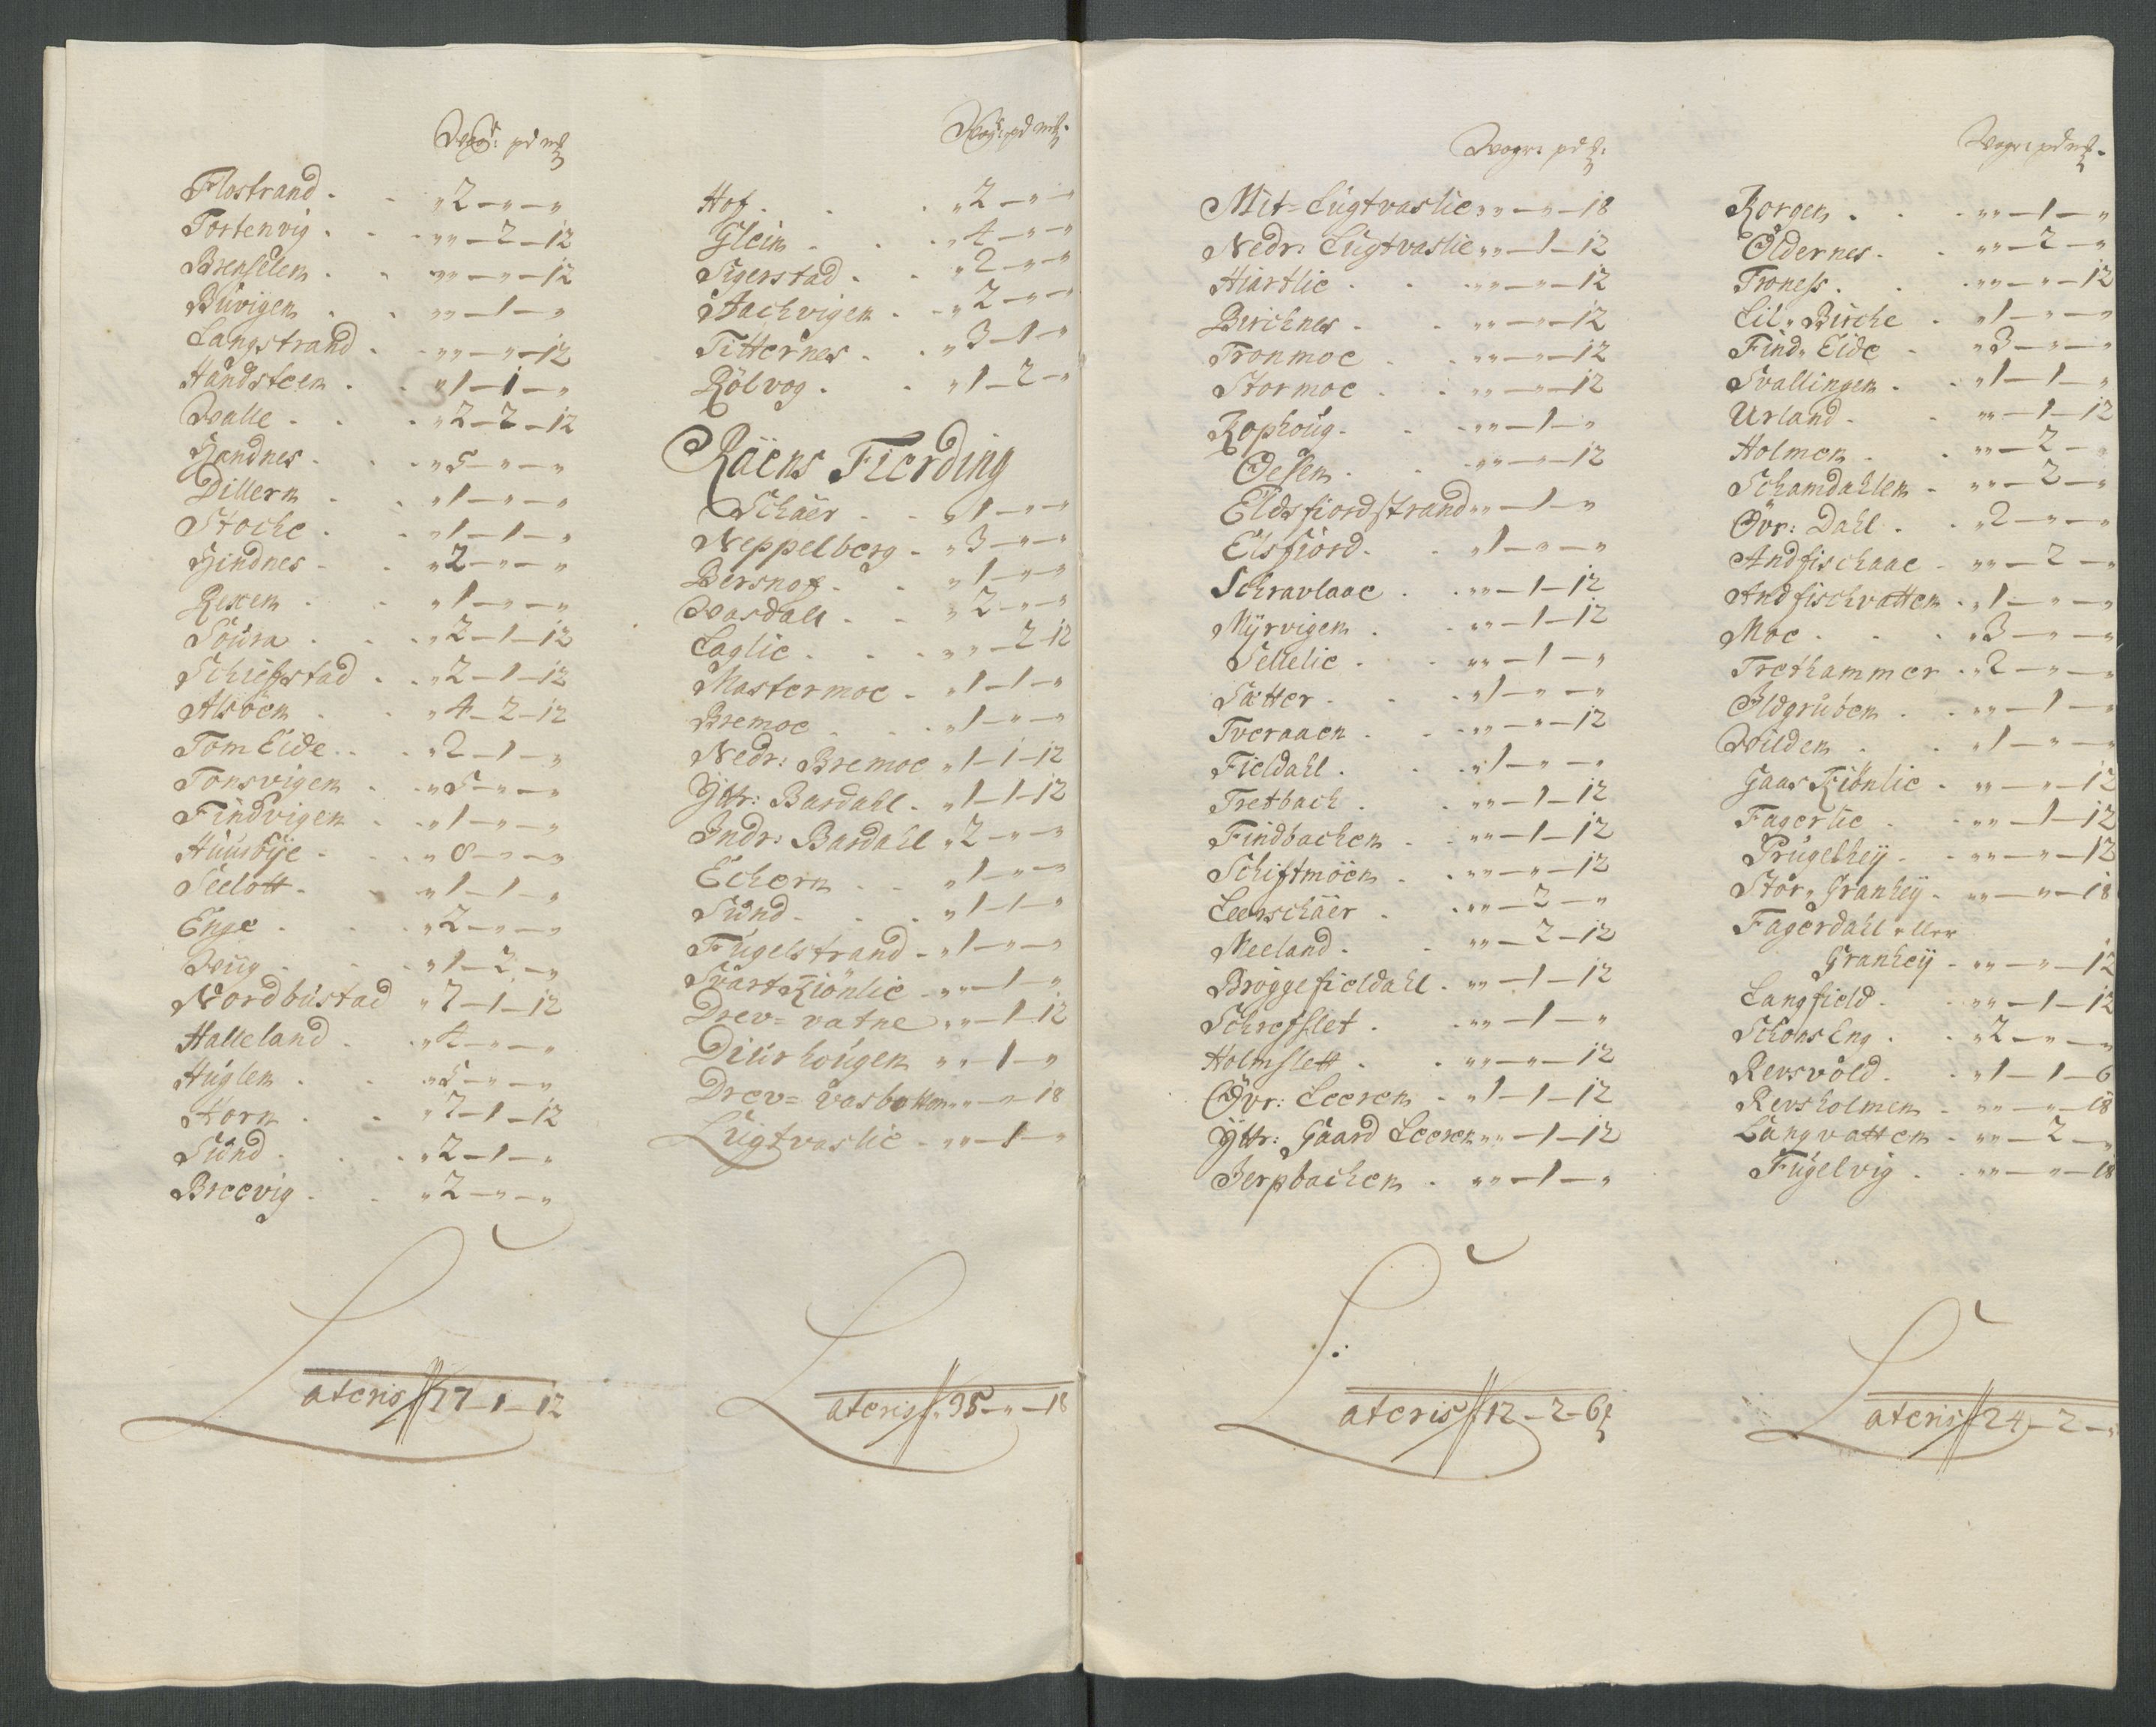 Wogr: pd mk
Flostrand . . „2-„-„
Tortenvig . . „„-2-12
Brenselem . . „„-„-12
Buvigen . . „„-1-„
Langstrand . . „„-„-12
Handsteen . . „1-1-„
Walle . . „2-2-12
Handnes . . „5-„-„
Dillern . . „1-„-„
Stoche . . „1-1-„
Hindnes . . „2-„-„
Rexen . . „1-„-„
Soura . . „2-1-12
Schiefstad . . „2-1-12
Alsöem . . „4-2-12
Tom Eide . . „2-1-„
Tonsvigem . . „5-„-„
Findvigem . . „1-„-„
Huusbÿe . . „8-„-„
Seelott . . „1-1-„
Enge . . „2-„-„
Wiig . . „1-2-„
Nordbustad „7-1-12
Halleland . „4-„-„
Huglen . . „5-„-„
Horn . . „7-1-12
Sund . . „2-1-„
Breevig . . „2-„-„
Lateris 77-1-12
Wogr: pd mk
Hof . . „2-„-„
Glein . . „4-„-„
Sigerstad . . „2-„-„
Aachvigen . . „2-„-„
Titternes . . „3-1-„
Rölvog . . „1-2-„
Räens Fierding
Schäer . . „1-„-„
Neppelberg . „3-„-„
Bersnof . . „1-„-„
Wasdall . . „2-„-„
Laglie . . „„-2-12
Mastermoe . „1-1-„
Bremoe . . „1-„-„
Nedr: Bremoe „1-1-12
Ÿttr: Bardahl . „1-1-12
Indr: Bardahl „2-„-„
Echorn . . „1-„-„
Sund . . „1-1-„
Fugelstrand . „1-„-„
Svart Kiönlie . „„-1-„
Drev= vatne „„-1-12
Diurhougen „„-1-„
Drev= vasbotten „„-„-18
Lugtvaslie . „„-1-„
Lateris „35-„-18
Wogr: pd
Mit=Lugtvaslie „„-„-18
Nedr: Lugtvaslie „„-1-12
Hiartlie . . „„-„-12
Birchnes . . „„-„-12
Tronmoe . . „„-„-12
Stormoe . . „„-„-12
Rophoug . . „„-1-„
Oesem . . „„-„-12
Eldsfiordstrand „„-1-„
Elsfiord . . „1-„-„
Schravlaae . . „„-1-12
Mÿrvigem . . „„-1-12
Sellelie . . „„-1-„
Sætter . . „1-„-„
Tveraaen . . „„-„-12
Fieldahl . . „1-„-„
Tretbach . . „„-1-12
Findbachem . . „„-1-12
Schiftmöen . . „„-„-12
Leerschäer . . „„-2-„
Meeland . . „„-2-12
Bröggefieldahl . „„-1-12
Schrefslet . . „„-1-„
Holmslett . . „„-„-12
Övr: Leerem . „1-1-12
Ÿttr: Gaard Leerem „„-1-12
Jerpbachem . „„-1-„
Lateris 12-2-6
Wogr: pd mk
Korgen . . „„-1-„
Oldernes . . „„-2-„
Troness . . „„-„-12
Lil„ Birche . „1-„-„
Find„ Eide . „3-„-„
Svallingen . . „1-1-„
Urland . . „„-1-12
Holmen . . „„-2-„
Schamdahlen . „„-2-„
Övr: Dahl . . „2-„-„
Andfischaae . „„-2-„
Andfischvattem . „1-„-„
Moe . . „3-„-„
Trethammer . „2-„-„
Ildgrubem . . „„-1-„
Wildem . . „1-„-„
Gaas Kiönlie . „„-„-12
Fagerlie . . „„-1-12
Prugelheÿ . . „„-„-12
Stor„ Granheÿ . „„-„-18
Fagerdahl eller
Granheÿ . „„-„-12
Langfield . . „„-1-12
Schons Eng . . „2-„-„
Revsvold . . „1-1-6
Revsholmen . „„-„-18
Langvattem . „„-2-„
Fugelvig . . „„-„-18
Lateris 24-2-„